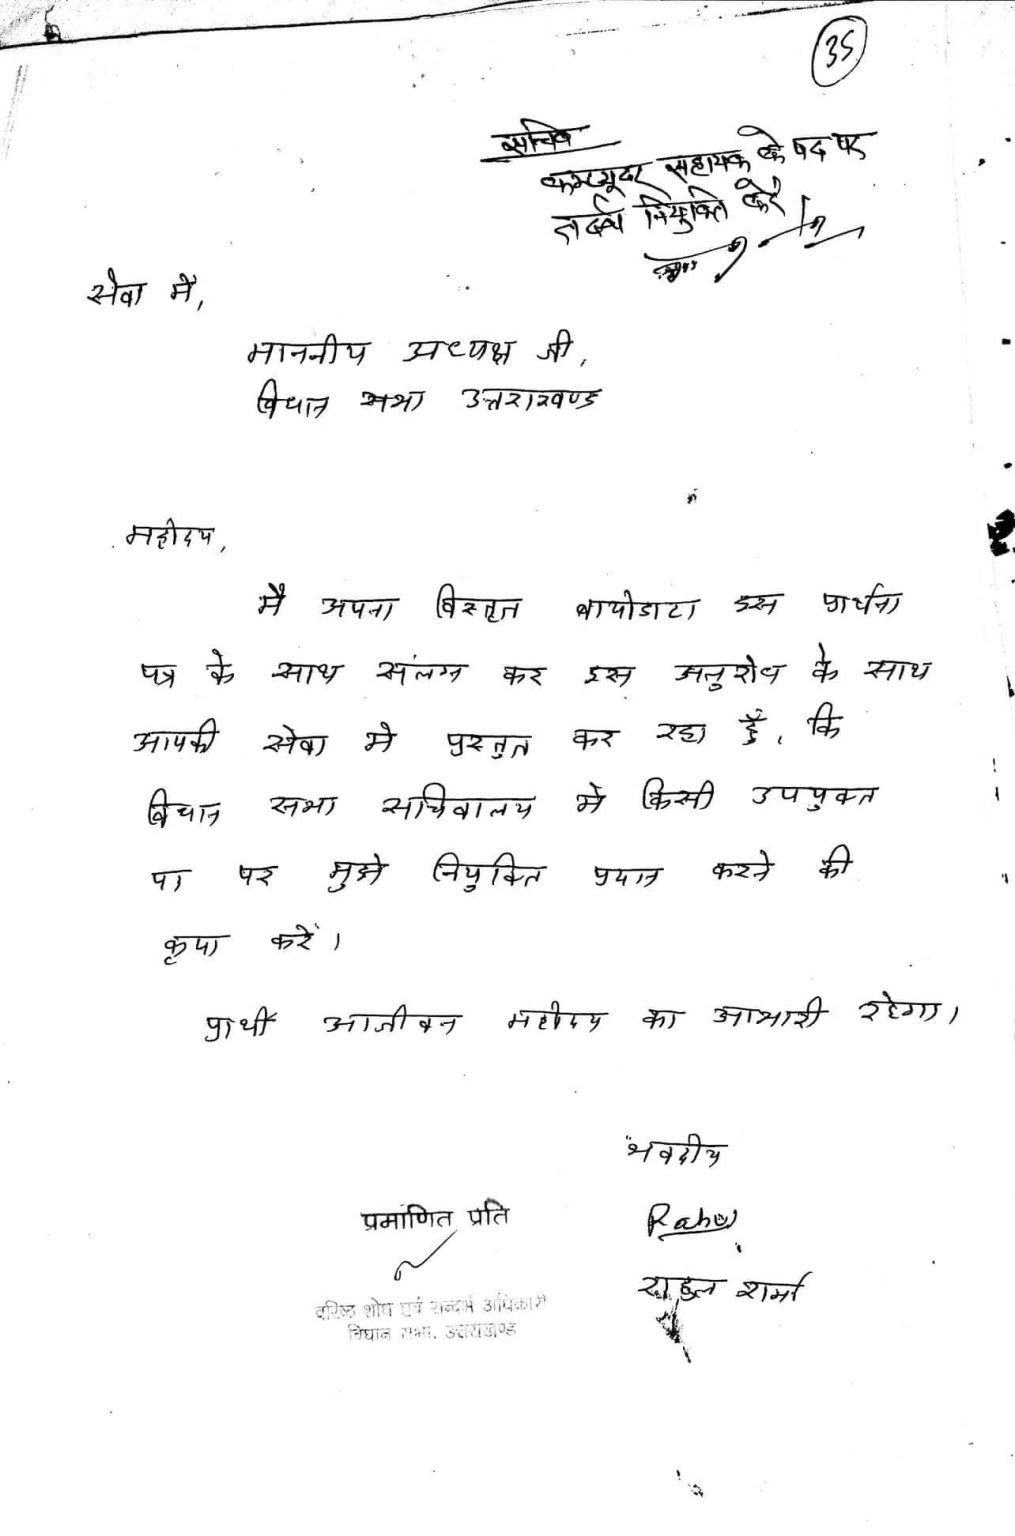 35
सचिव
कम्प्यूटर सहायक के पद पर
तदर्थ नियुक्ति करें
सेवा में,
माननीय अध्यक्ष जी,
विधान सभा उत्तराखण्ड
महोदय,
मै अपना विस्तृत बायोडाटा इस प्रार्थना
पत्र के साथ संलग्न कर इस अनुरोध के साथ
आपकी सेवा मे प्रस्तुत कर रहा हूँ, कि
विधान सभा सचिवालय मे किसी उपयुक्त
पा पर मुझे नियुक्ति प्रदान करने की
कृपा करें।
प्रार्थी आजीवन महोदय का आभारी रहेगा।
भवदीय
प्रमाणित प्रति
Rahul
राहुल शर्मा
वरिष्ठ शोध एवं सन्दर्भ अधिकारी
विधान सभा, उत्तराखण्ड